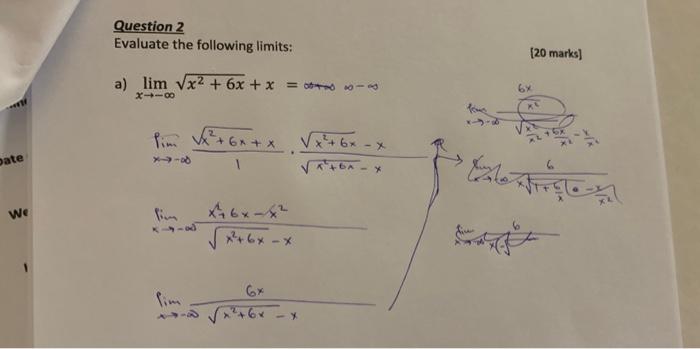 Question 2
Evaluate the following limits:
[20 marks]
a) lim x→-∞ √(x² + 6x) + x = ∞ - ∞
lim x→-∞ (√(x² + 6x) + x)/1 · (√(x² + 6x) - x)/(√(x² + 6x) - x)
lim x→-∞ (x² + 6x - x²)/(√(x² + 6x) - x)
lim x→-∞ 6x/(√(x² + 6x) - x)
lim x→-∞ (6x/x²)/(√(x²/x² + 6x/x²) - x/x²)
ate
We